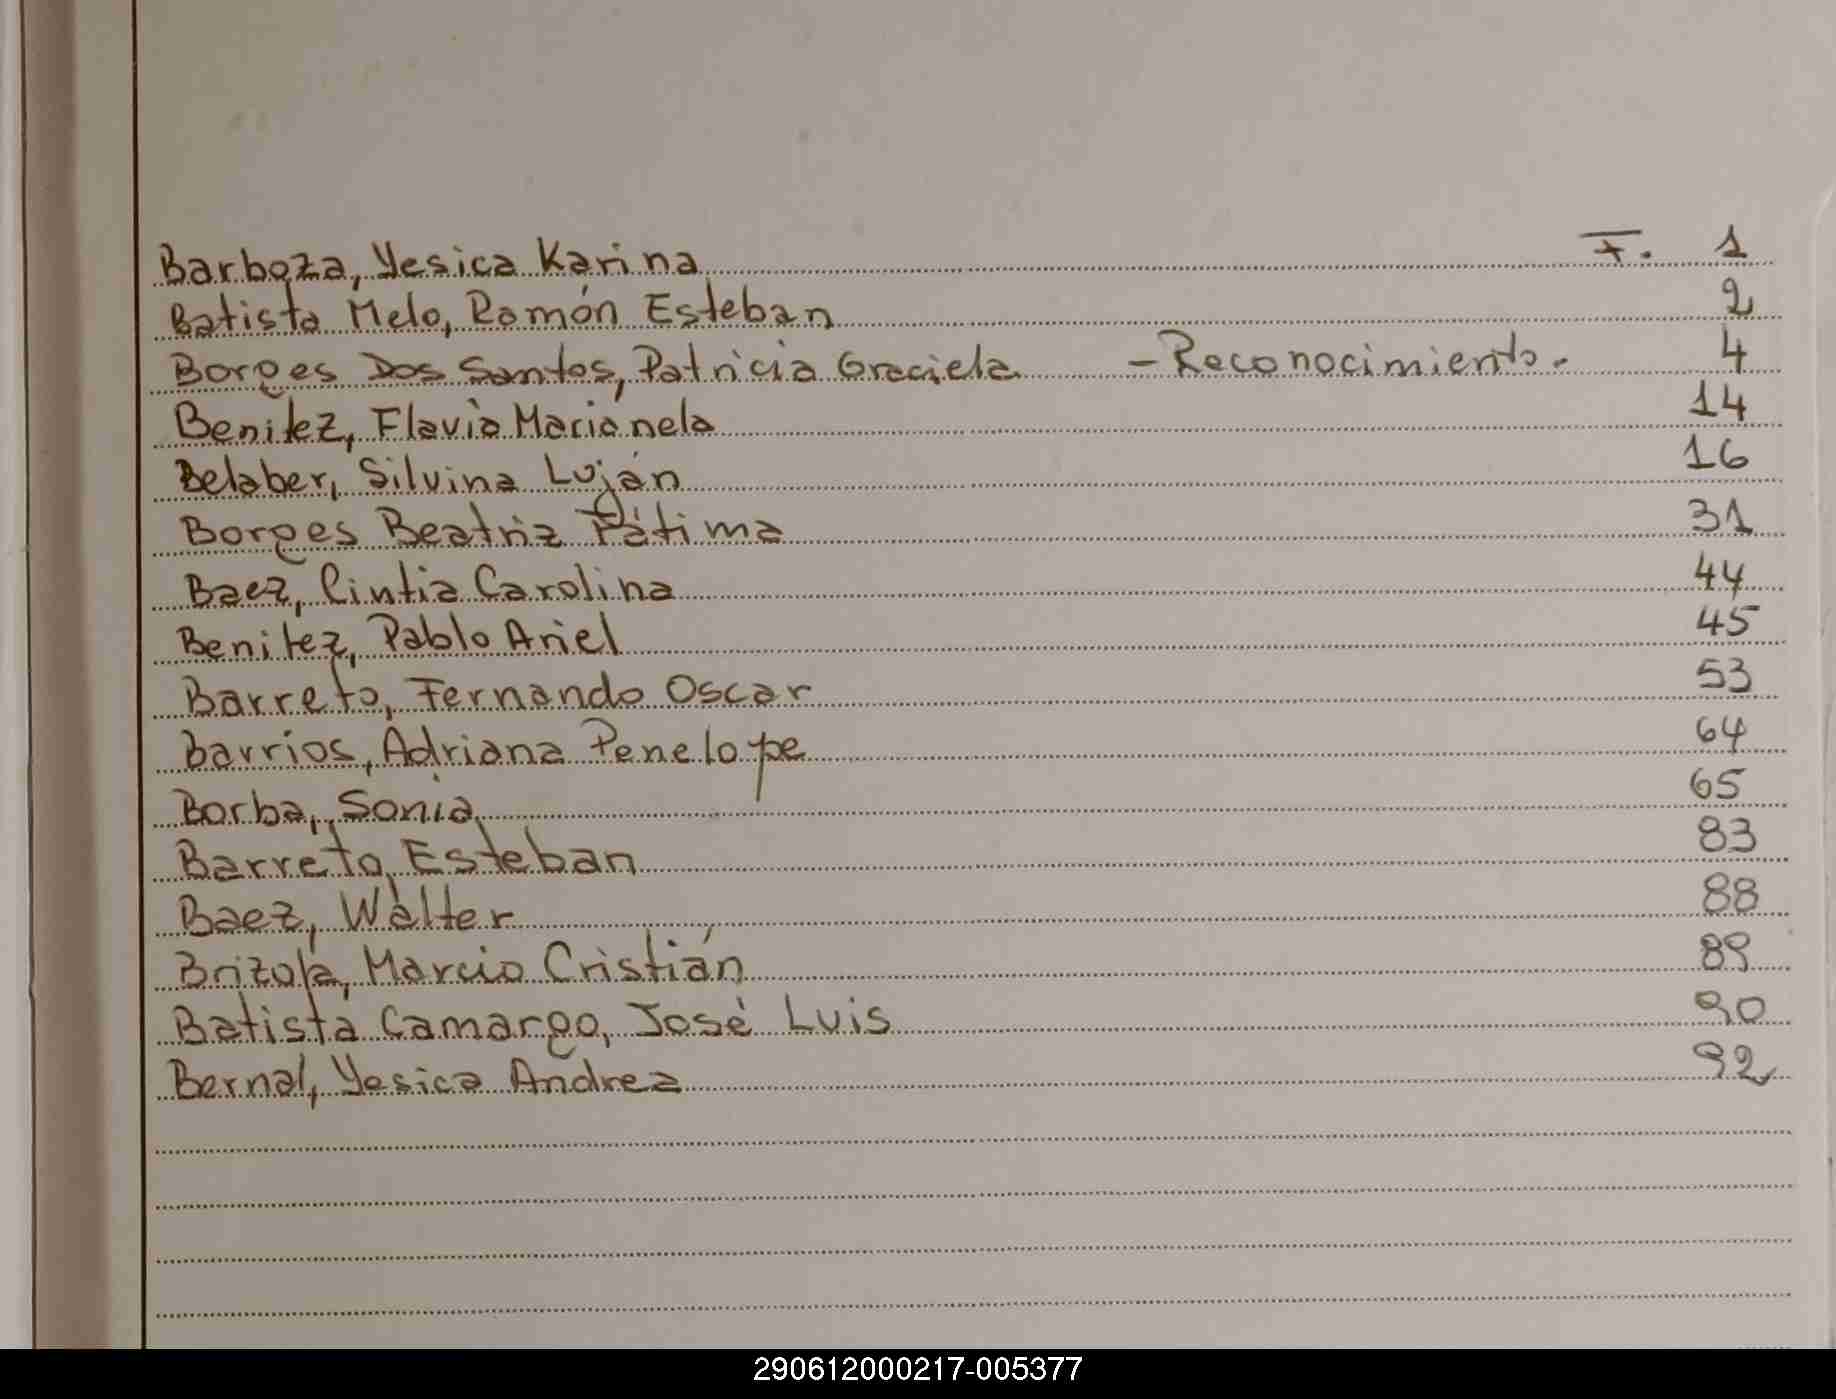 Barboza, Yesica Karina F. 1
Batista Melo, Ramón Esteban 2
Borges Dos Santos, Patricia Graciela - Reconocimiento. 4
Benitez, Flavia Marianela 14
Belaber, Silvina Luján 16
Borges Beatriz Fátima 31
Baez, Cintia Carolina 44
Benitez, Pablo Ariel 45
Barreto, Fernando Oscar 53
Barrios, Adriana Penelope 64
Borba, Sonia 65
Barreto, Esteban 83
Baez, Walter 88
Brizola, Marcio Cristián 89
Batista Camargo, José Luis 90
Bernal, Yesica Andrea 92
290612000217-005377